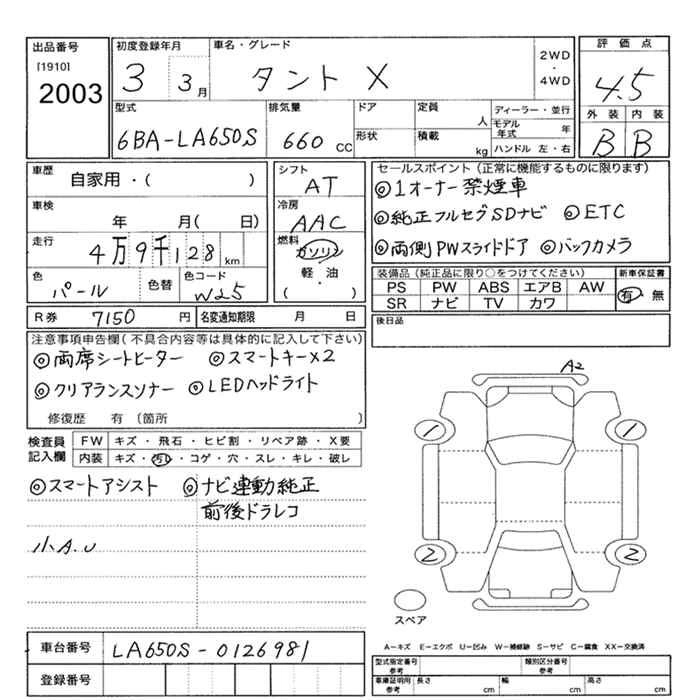 出品番号
[1910]
2003
初度登録年月
3 3月
車名・グレード
タント X
2WD
・
4WD
評価点
4.5
外装 内装
B B
型式
6BA-LA650S
排気量
660 CC
ドア
形状
定員
人
積載
kg
ディーラー・並行
モデル年式 年
ハンドル 左・右
車歴
自家用・( )
車検
年 月( 日)
走行
4万9千128 km
色
パール
色替
色コード
W25
シフト
AT
冷房
AAC
燃料
ガソリン
軽・油
( )
セールスポイント(正常に機能するものに限ります)
◎1オーナー禁煙車
◎純正フルセグSDナビ ◎ETC
◎両側PWスライドドア ◎バックカメラ
装備品(純正品に限り○をつけてください)
PS PW ABS エアB AW
SR ナビ TV カワ
新車保証書
有・無
R券 7150 円
名変通知期限 月 日
後日品
注意事項申告欄(不具合内容等は具体的に記入して下さい)
◎両席シートヒーター ◎スマートキーX2
◎クリアランスソナー ◎LEDヘッドライト
修復歴 有 (箇所 )
検査員記入欄
FW キズ・飛石・ヒビ割・リペア跡・X要
内装 キズ・汚レ・コゲ・穴・スレ・キレ・破レ
◎スマートアシスト ◎ナビ連動純正
前後ドラレコ
小A.U
A2
1 1
2 2
スペア
車台番号 LA650S-0126981
登録番号
A－キズ E－エクボ U－凹み W－補修跡 S－サビ C－腐食 XX－交換済
型式指定番号
参考
類別区分番号
参考
車庫証明用
参考
長さ cm 幅 cm 高さ cm